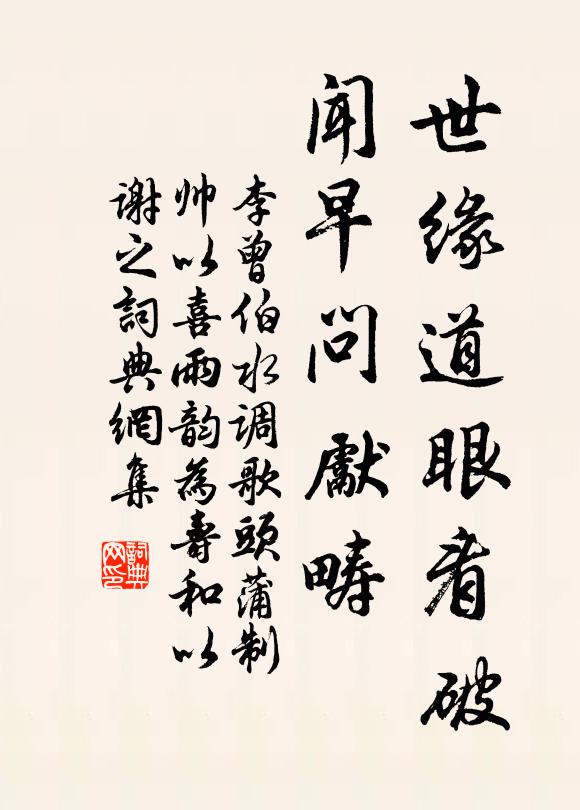 世缘道眼看破
闻早问献畴
李曾伯水调歌頭蒲制
帅以喜雨韵為寿和以
谢之詞典網集
詞典网印